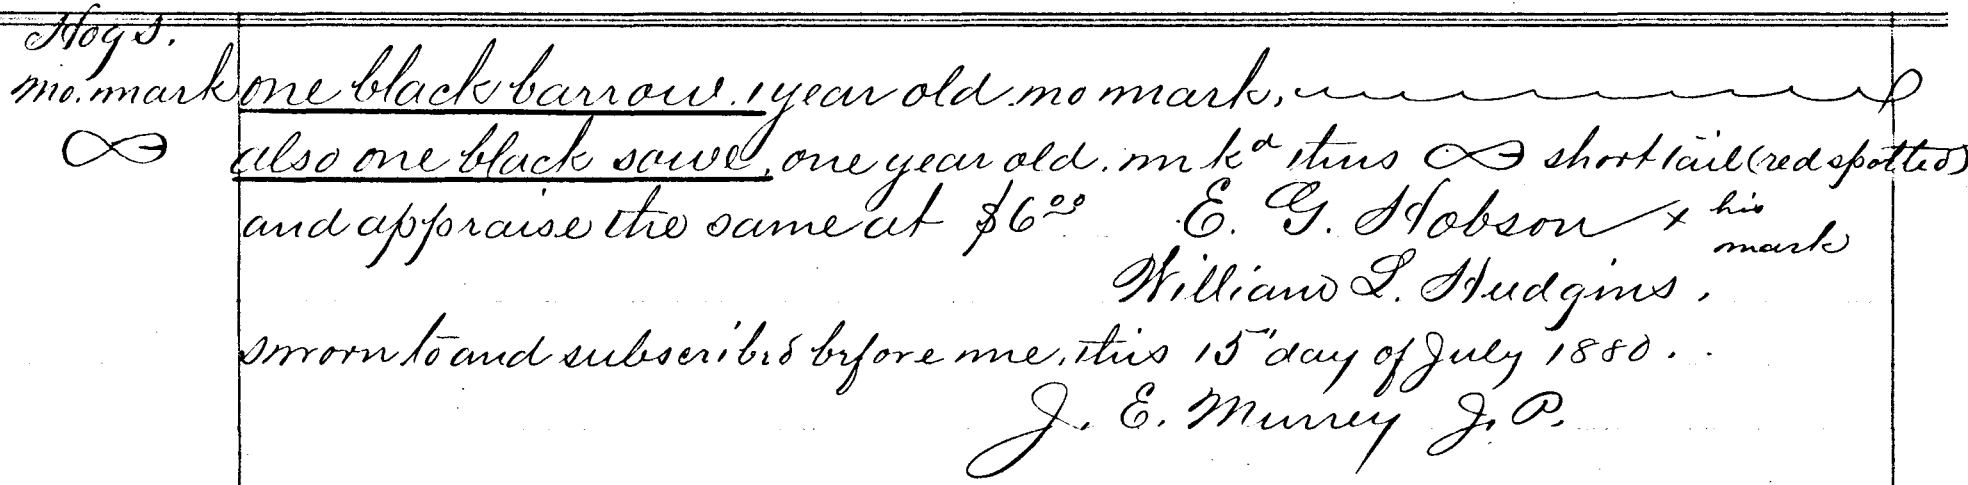 Hogs.
no. mark one black barrow. 1 year old no mark,
∞ also one black sowe, one year old. mkᵈ thus ∞ short tail (red spotted)
and appraise the same at $6⁰⁰ E. G. Hobson x his mark
William L. Hudgins.
sworn to and subscribed before me, this 15" day of July 1880.
J. E. Murrey J. P.